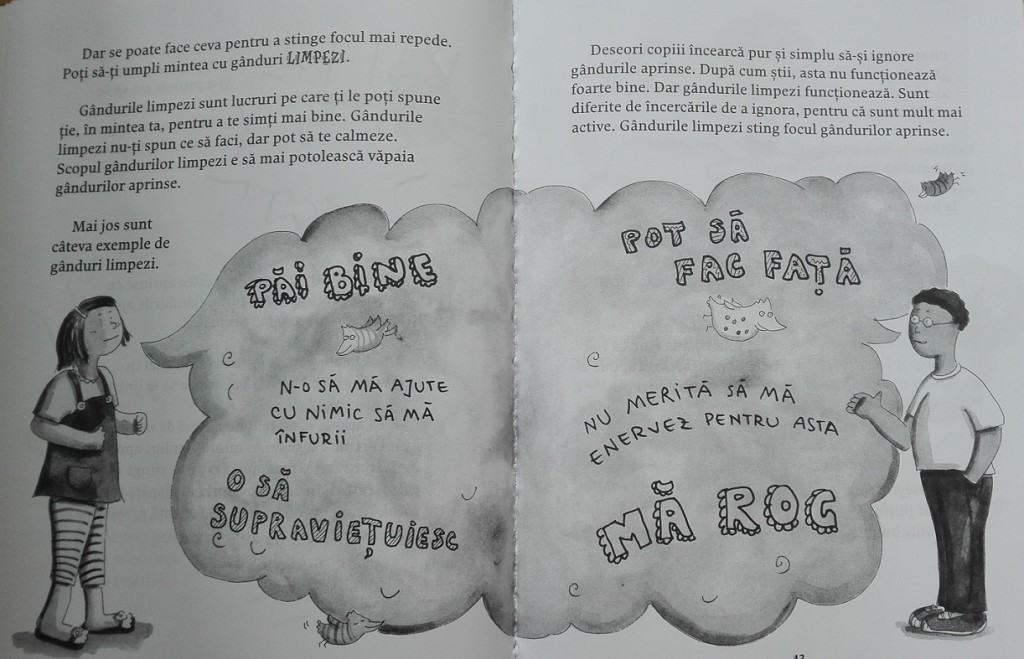 Dar se poate face ceva pentru a stinge focul mai repede.
Poți să-ți umpli mintea cu gânduri LIMPEZI.
Gândurile limpezi sunt lucruri pe care ți le poți spune
ție, în mintea ta, pentru a te simți mai bine. Gândurile
limpezi nu-ți spun ce să faci, dar pot să te calmeze.
Scopul gândurilor limpezi e să mai potolească văpaia
gândurilor aprinse.
Mai jos sunt
câteva exemple de
gânduri limpezi.
PĂI BINE
N-O SĂ MĂ AJUTE
CU NIMIC SĂ MĂ
ÎNFURII
O SĂ
SUPRAVIEȚUIESC
Deseori copiii încearcă pur și simplu să-și ignore
gândurile aprinse. După cum știi, asta nu funcționează
foarte bine. Dar gândurile limpezi funcționează. Sunt
diferite de încercările de a ignora, pentru că sunt mult mai
active. Gândurile limpezi sting focul gândurilor aprinse.
POT SĂ
FAC FAȚĂ
NU MERITĂ SĂ MĂ
ENERVEZ PENTRU ASTA
MĂ ROG